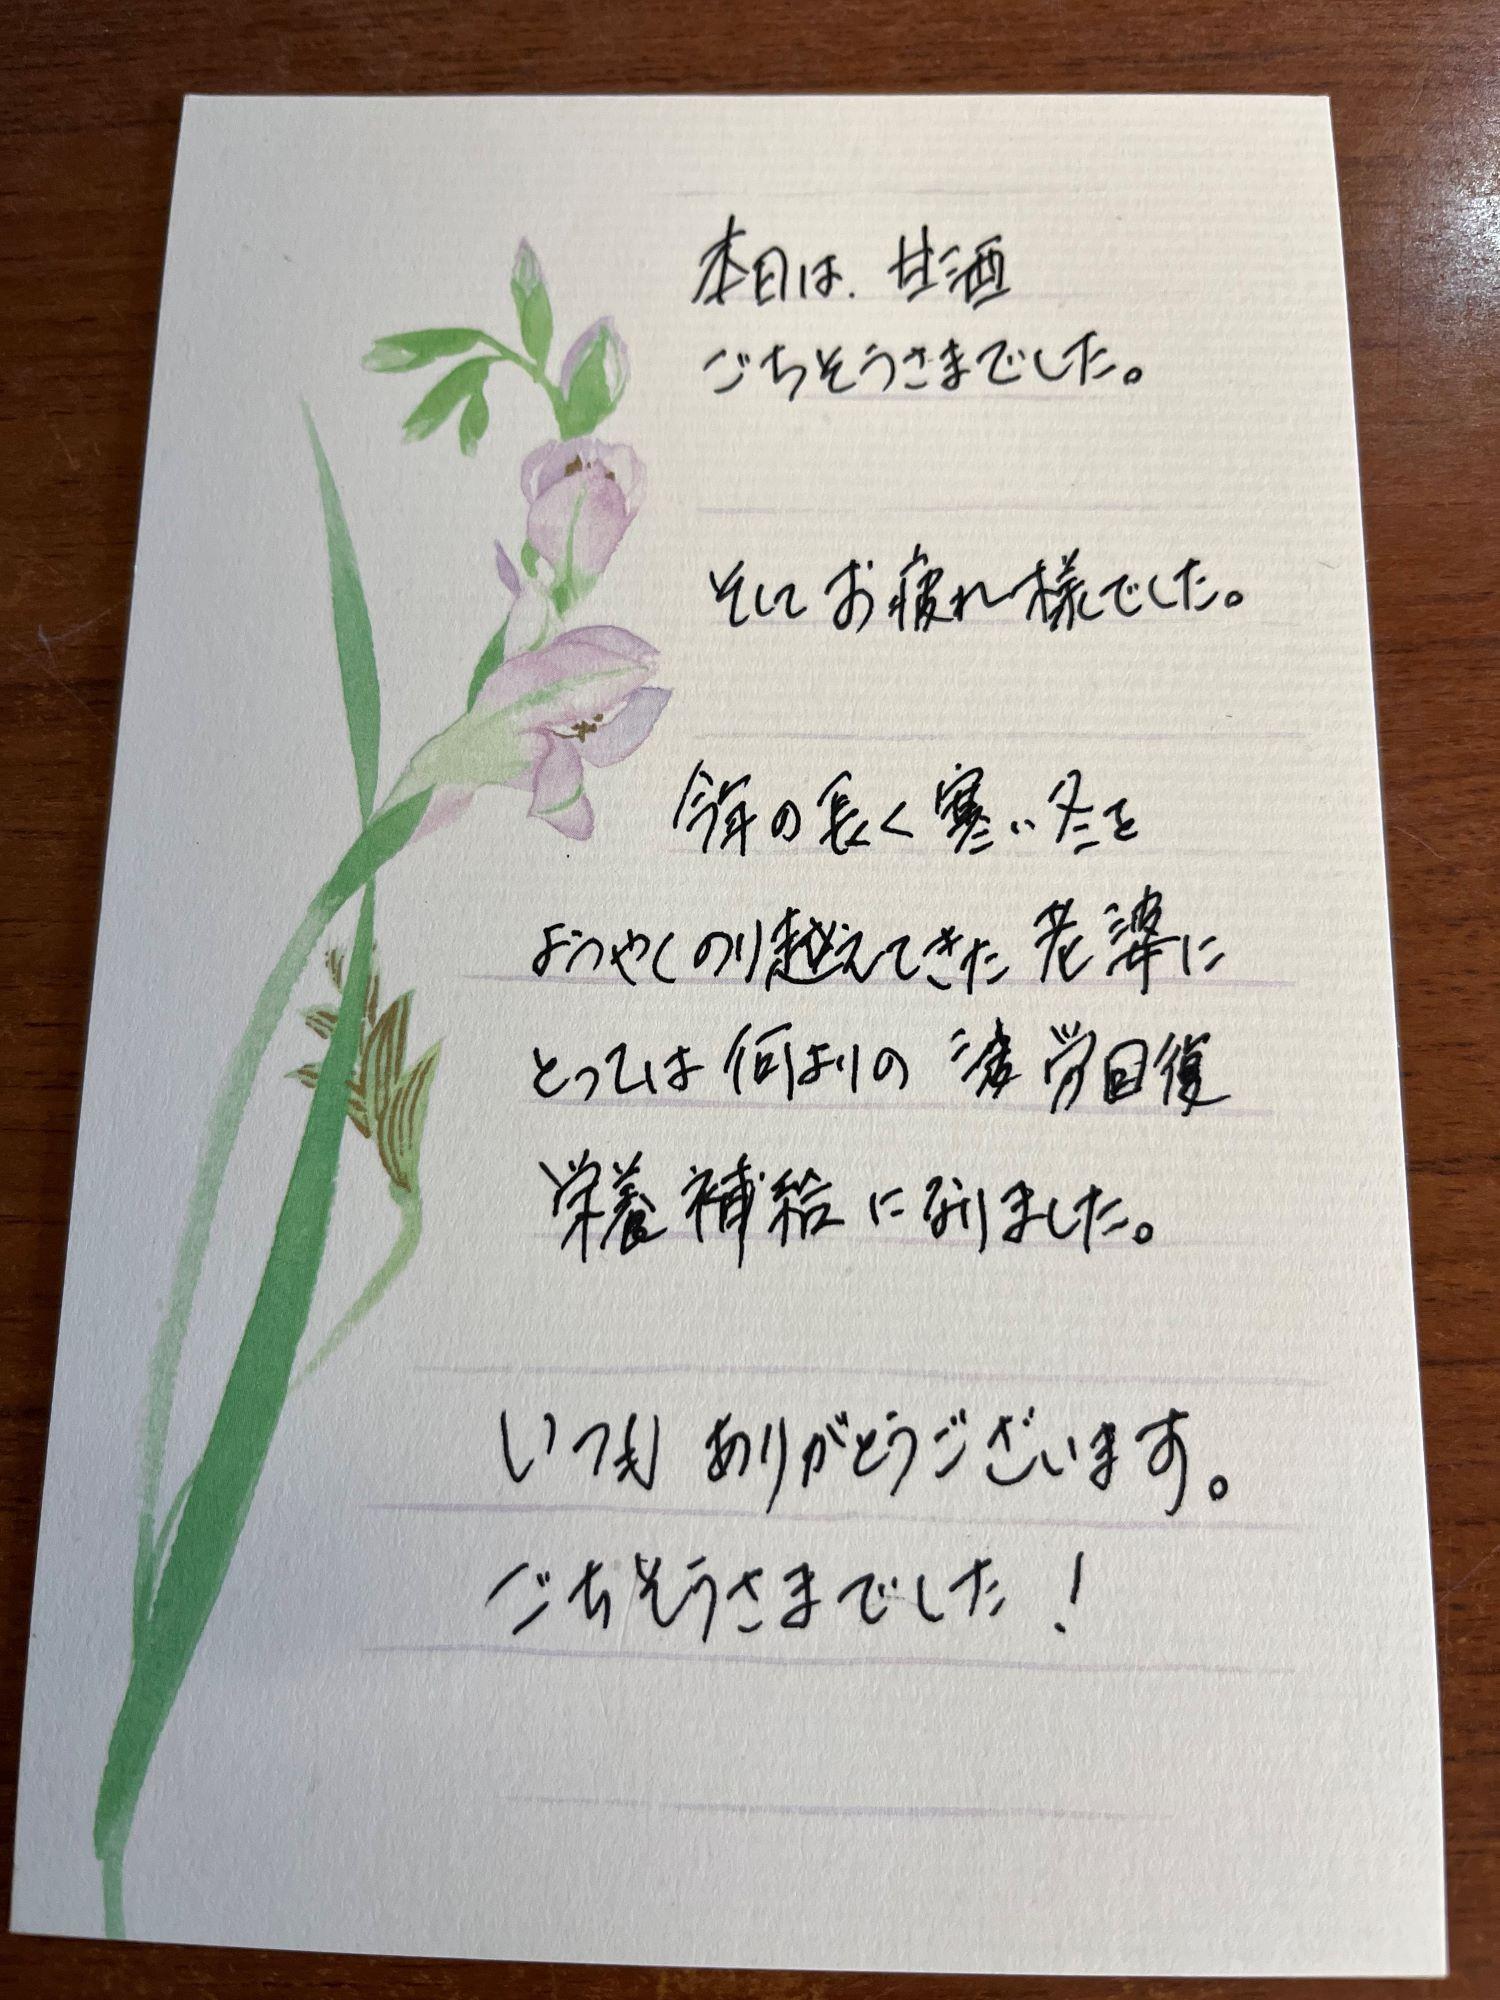 本日は、甘酒
ごちそうさまでした。
そしてお疲れ様でした。
今年の長く寒い冬を
ようやくのり越えてきた老婆に
とっては何よりの疲労回復
栄養補給になりました。
いつもありがとうございます。
ごちそうさまでした!